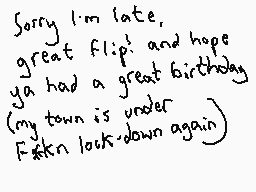 Sorry I'm late,
great flip! and hope
ya had a great birthday
(my town is under
F*kn lock-down again)